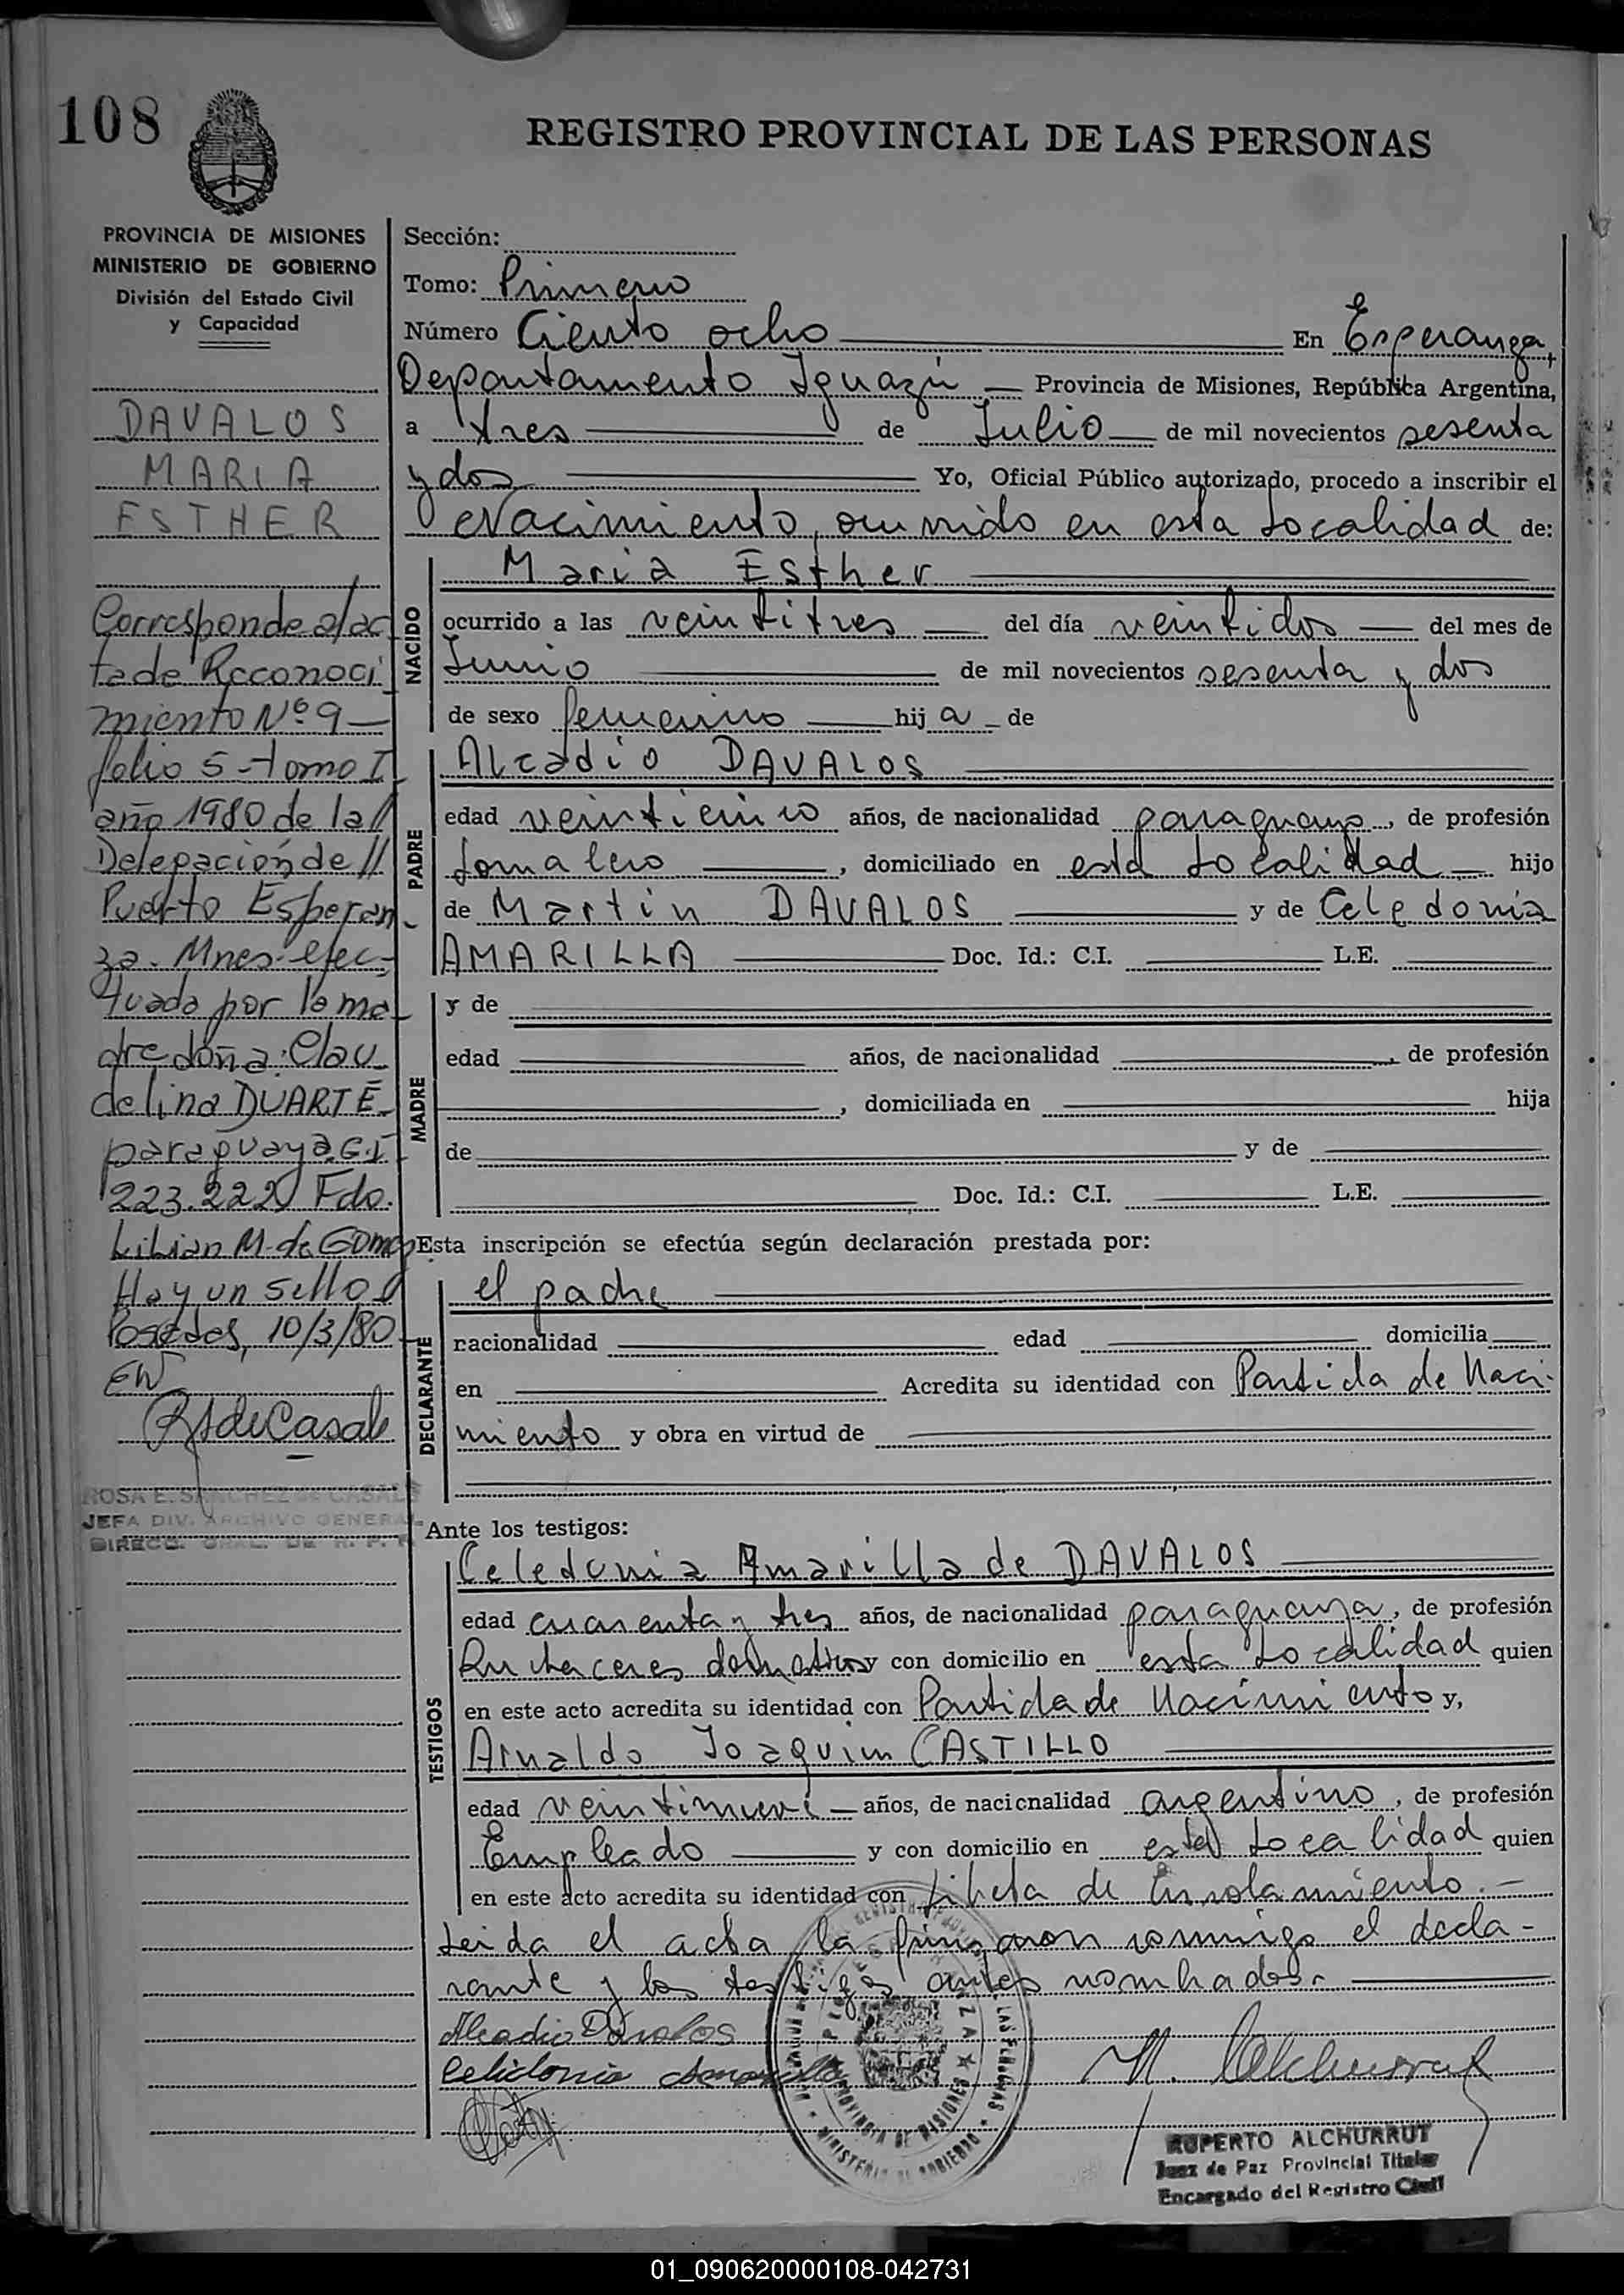 108
REGISTRO PROVINCIAL DE LAS PERSONAS
PROVINCIA DE MISIONES
MINISTERIO DE GOBIERNO
División del Estado Civil
y Capacidad
DAVALOS
MARIA
ESTHER
Corresponde a/ac
ta de Reconoci
miento Nº 9 —
folio 5 - tomo I
año 1980 de la //
Delegación de //
Puerto Esperan
za - Mnes. efec-
tuada por la ma
dre doña: Clau
delina DUARTE
paraguaya C.I.
223.222 Fdo.
Lilian M. de Gomez
Hay un sello
Posadas, 10/3/80
EW
RSdeCasals
ROSA E. SANCHEZ de CASALS
JEFA DIV. ARCHIVO GENERAL
DIRECC. GRAL. DE R. P. P.
Sección:
Tomo: Primero
Número Ciento ocho En Esperanza,
Departamento Iguazú Provincia de Misiones, República Argentina,
a tres de Julio de mil novecientos sesenta
y dos Yo, Oficial Público autorizado, procedo a inscribir el
Nacimiento, ocurrido en esta Localidad de:
NACIDO
Maria Esther
ocurrido a las veintitres del día veintidos del mes de
Junio de mil novecientos sesenta y dos
de sexo femenino hija de
PADRE
Alcadio DAVALOS
edad veinticinco años, de nacionalidad paraguayo, de profesión
Jornalero, domiciliado en esta Localidad hijo
de Martin DAVALOS y de Celedonia
AMARILLA Doc. Id.: C.I. L.E.
MADRE
y de
edad años, de nacionalidad , de profesión
, domiciliada en hija
de y de
Doc. Id.: C.I. L.E.
Esta inscripción se efectúa según declaración prestada por:
DECLARANTE
el padre
nacionalidad edad domicilia
en Acredita su identidad con Partida de Naci-
miento y obra en virtud de
Ante los testigos:
TESTIGOS
Celedonia Amarilla de DAVALOS
edad cuarenta y tres años, de nacionalidad paraguaya, de profesión
Quehaceres domésticos y con domicilio en esta Localidad quien
en este acto acredita su identidad con Partida de Nacimiento y,
Arnaldo Joaquin CASTILLO
edad veintinueve años, de nacionalidad argentino, de profesión
Empleado y con domicilio en esta Localidad quien
en este acto acredita su identidad con Libreta de Enrolamiento.-
Leida el acta, la firmaron conmigo el decla-
rante y los testigos antes nombrados.-
Alcadio Davalos
Celidonia Amarilla
PROVINCIA DE MISIONES
LAS PERSONAS
MINISTERIO DE GOBIERNO
R. Alchurrut
RUPERTO ALCHURRUT
Juez de Paz Provincial Titular
Encargado del Registro Civil
01_090620000108-042731